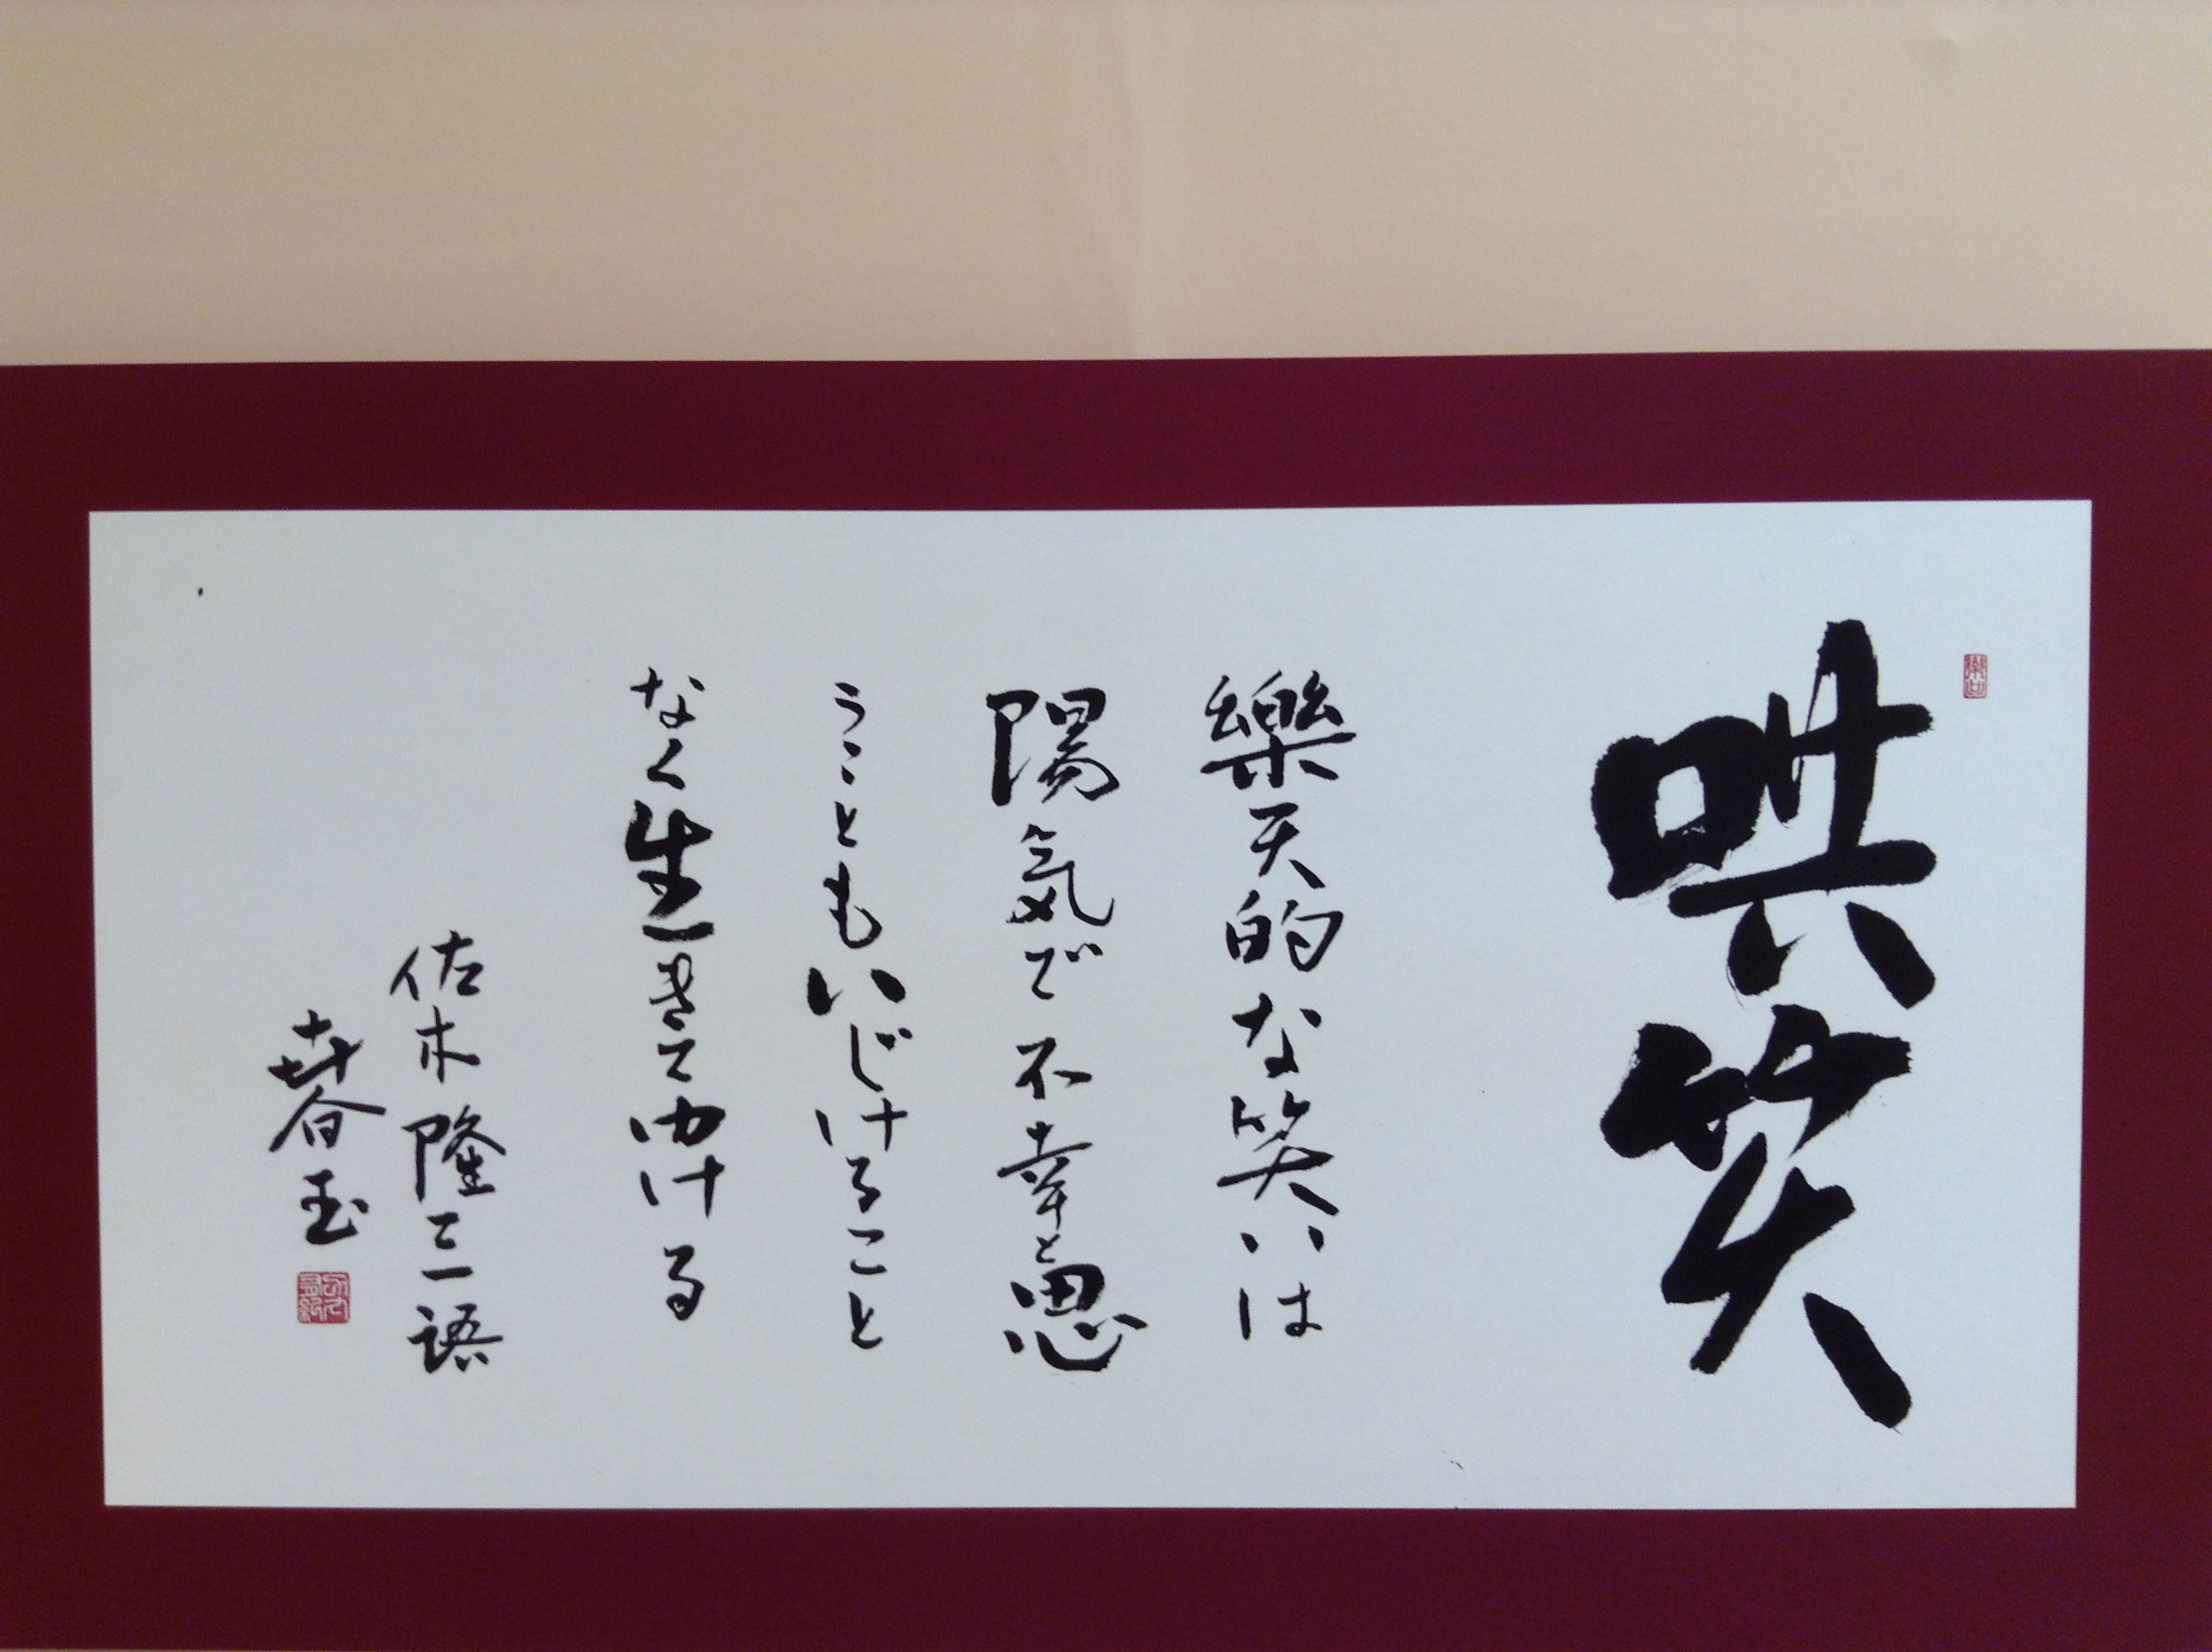 哄笑
樂天的な笑いは
陽気で不幸と思
うこともいじけること
なく生きてゆける
佐木隆三語
春玉